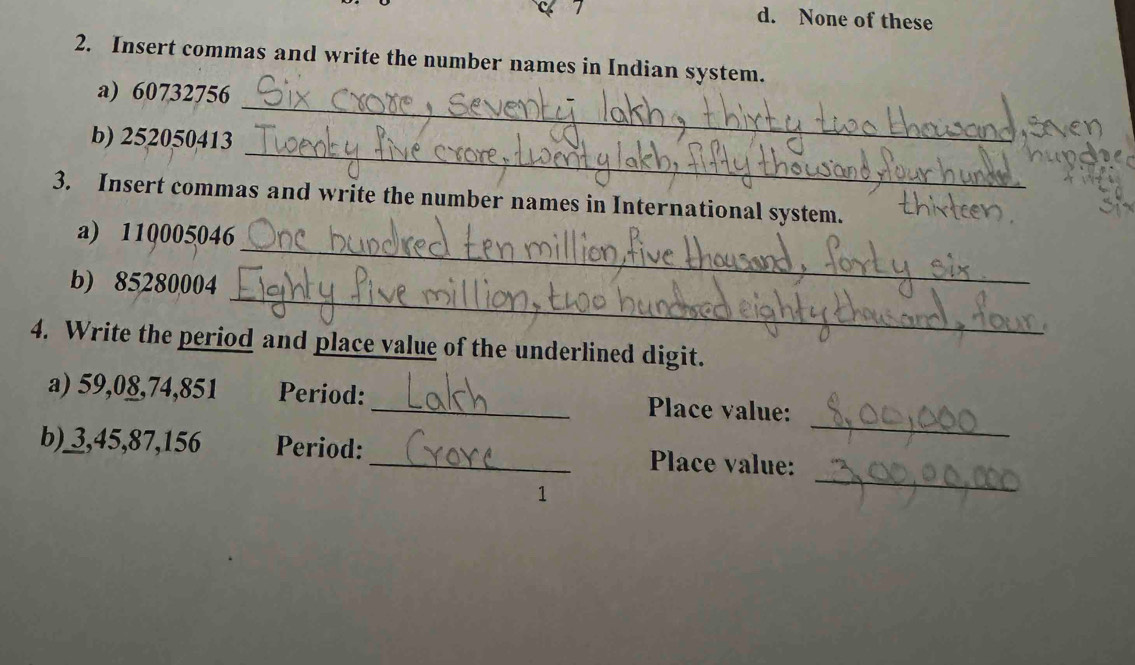 c. 7
d. None of these
2. Insert commas and write the number names in Indian system.
a) 60732756 Six crore, seventy lakh, thirty two thousand, seven hundred fifty six
b) 252050413 Twenty five crore, twenty lakh, fifty thousand, four hundred thirteen.
3. Insert commas and write the number names in International system.
a) 110005046 One hundred ten million, five thousand, forty six.
b) 85280004 Eighty five million, two hundred eighty thousand, four.
4. Write the period and place value of the underlined digit.
a) 59,08,74,851 Period: Lakh Place value: 8,00,000
b) 3,45,87,156 Period: Crore Place value: 3,00,00,000
1